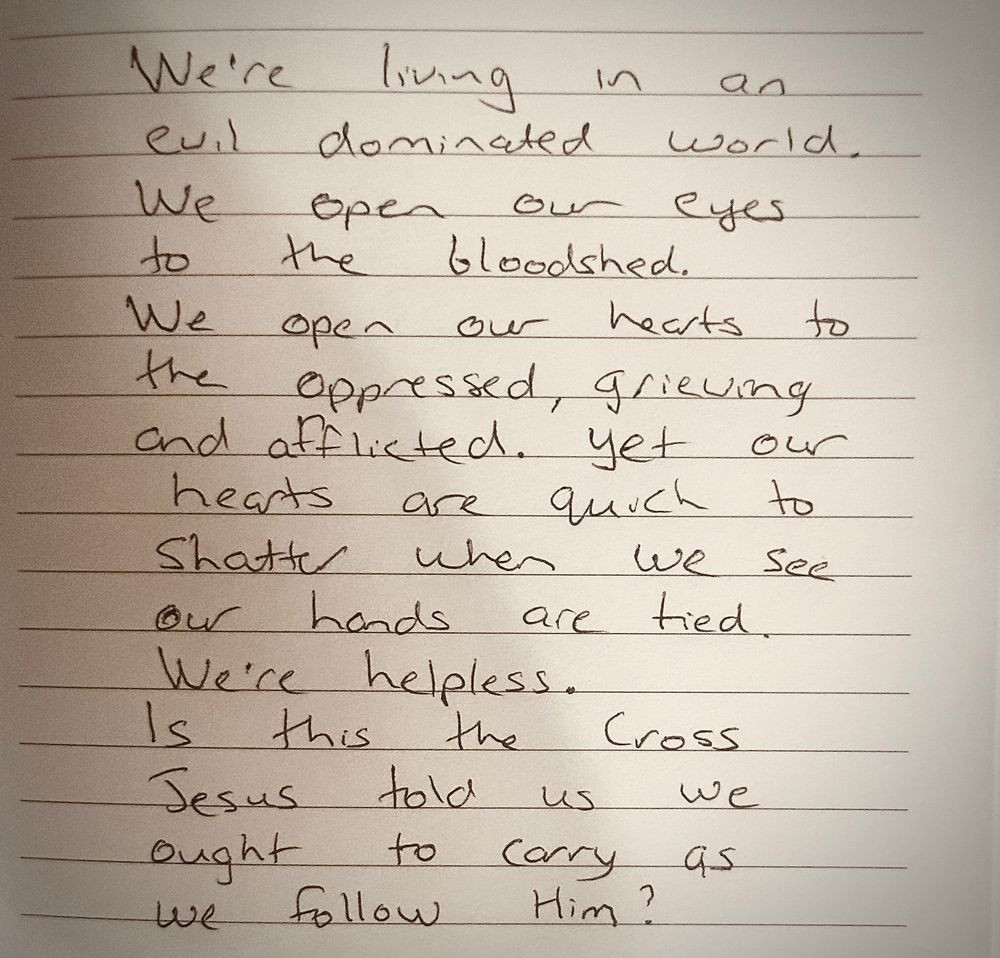 We're living in an
evil dominated world.
We open our eyes
to the bloodshed.
We open our hearts to
the oppressed, grieving
and afflicted. yet our
hearts are quick to
shatter when we see
our hands are tied.
We're helpless.
Is this the Cross
Jesus told us we
ought to carry as
we follow Him?